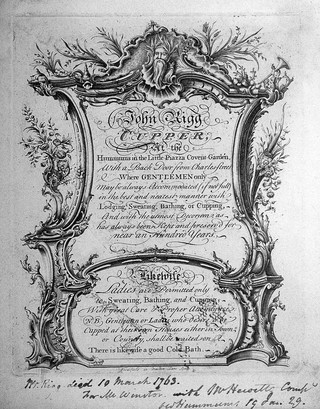 John Rigg
CUPPER,
At the
Hummums in the Little Piazza Covent Garden,
With a Back Door from Charles street
Where GENTLEMEN only
May be always Accommodated (if not full)
in the best and neatest manner with
Lodging, Sweating, Bathing, or Cupping,
And with the utmost Decorum; as
has always been Kept and preserv'd for
near an Hundred Years.
Likewise
Ladies are Permitted only
to Sweating, Bathing, and Cupping,
With great Care & Proper Attendance
N.B. Gentlemen or Ladies who desire to be
Cupped at their own Houses either in Town
or Country, shall be waited on.
There is likewise a good Cold Bath.
died 10 March 1763.
for Mr with Mr Hewitt
Hummums 19 Jan. 29.